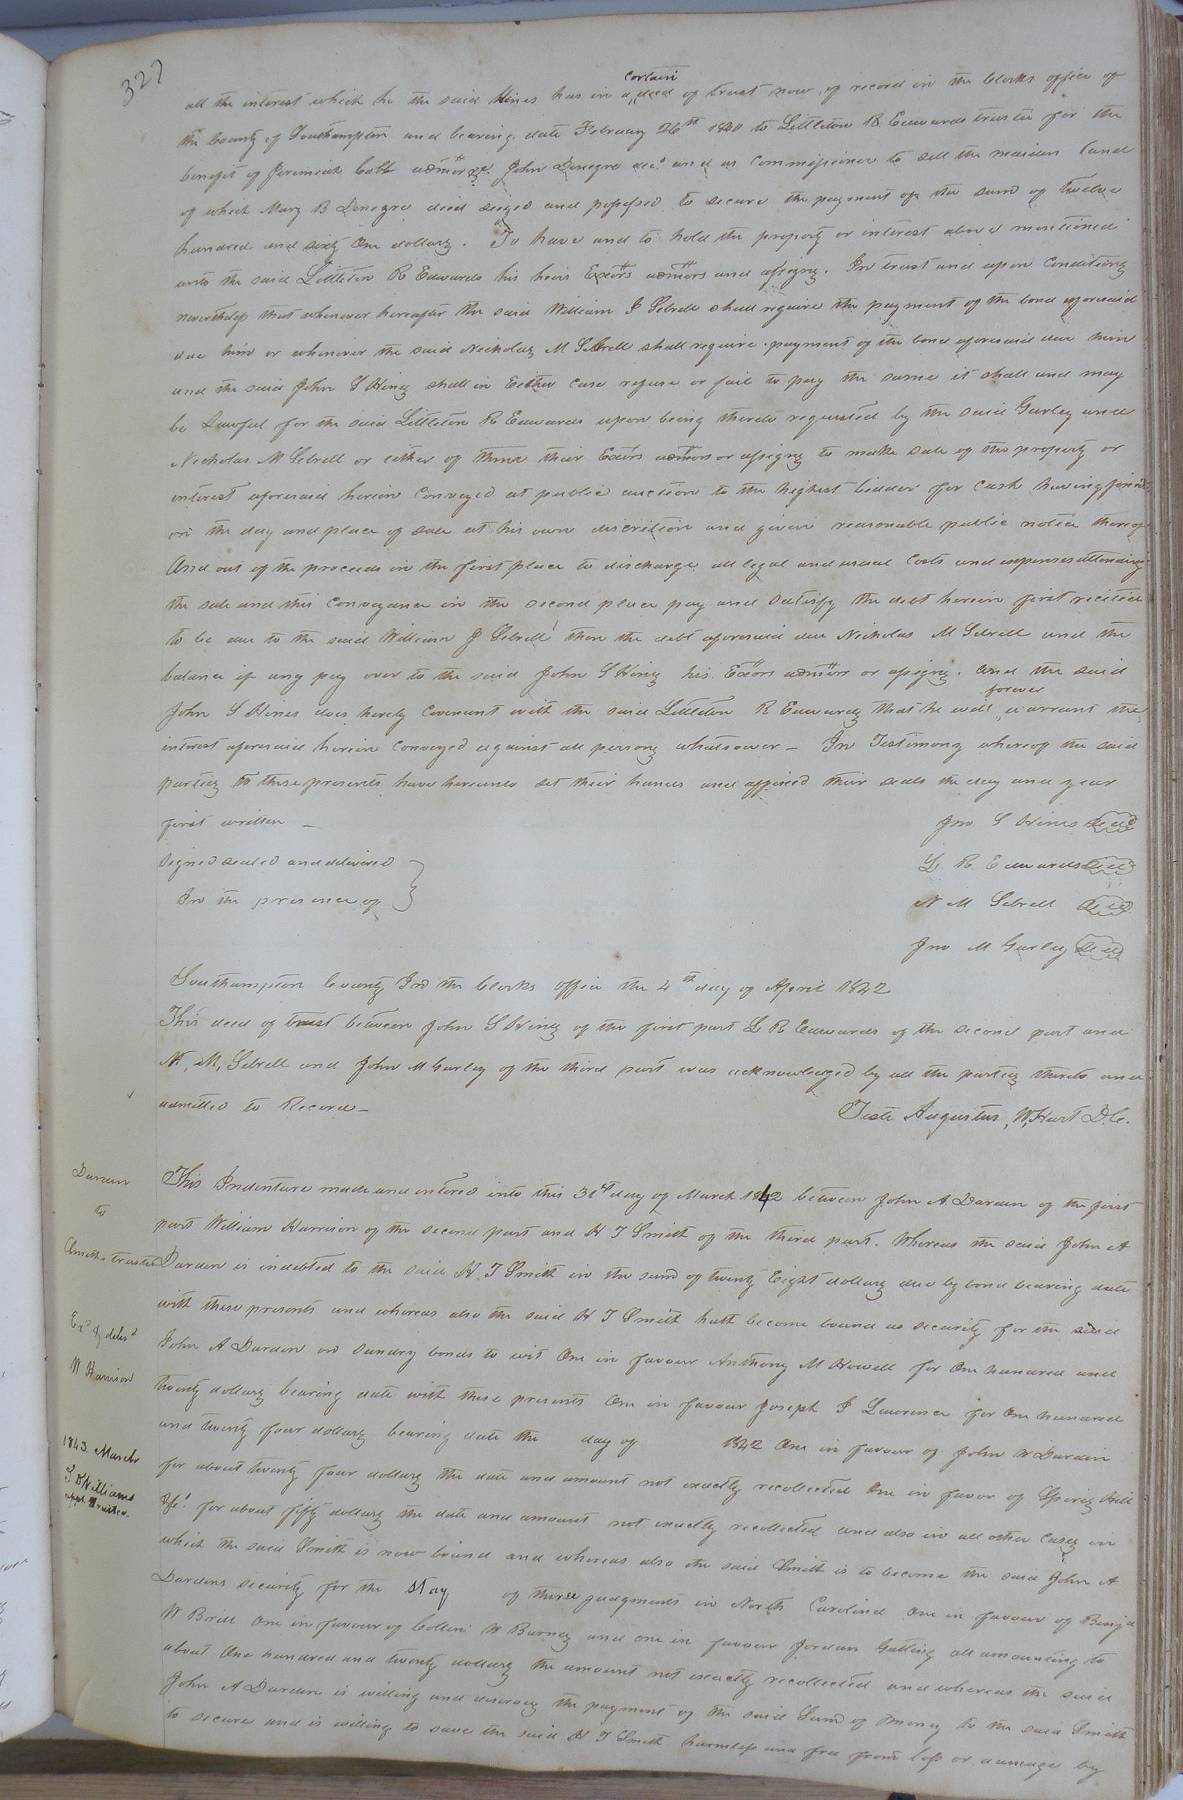 327
all the interest which he the said Hines has in a certain deed of trust now of record in the clerks office of
the County of Southampton and bearing date February 26th 1840 to Littleton R Edwards trustee for the
benefit of Jeremiah Cobb John decd and as Commissioner to sell the maiden land
of which Mary B died seized and possessed to secure the payment of the sum of twelve
hundred and sixty One dollars. To have and to hold the property or interest above mentioned
unto the said Littleton R Edwards his heirs Exors admors and assigns. In trust and upon Conditions
nevertheless that whenever hereafter the said William J Sebrell shall require the payment of the bond aforesaid
due him or whenever the said Nicholas M Sebrell shall require payment of the bond aforesaid due him
and the said John S Hines shall in Either case refuse or fail to pay the same it shall and may
be Lawful for the said Littleton R Edwards upon being thereto requested by the said Gurley and
Nicholas M Sebrell or either of them their Exors admors or assigns to make sale of the property or
interest aforesaid herein Conveyed at public auction to the highest bidder for Cash having fixed
on the day and place of sale at his own discretion and given reasonable public notice thereof
And out of the proceeds in the first place to discharge all legal and usual Costs and expenses attending
the sale and this Conveyance in the second place pay and satisfy the debt herein first recited
to be due to the said William J Sebrell then the debt aforesaid due Nicholas M Sebrell and the
balance if any pay over to the said John S Hines his Exors admors or assigns. And the said
John S Hines does hereby Covenant with the said Littleton R Edwards that he will forever warrant the
interest aforesaid herein Conveyed against all persons whatsoever - In Testimony whereof the said
parties to these presents have hereunto set their hands and affixed their seals the day and year
first written - Jno S Hines Seal
Signed sealed and delivered L R. Edwards Seal
In the presence of N M Sebrell Seal
Jno M Gurley Seal
Southampton County In the Clerks office the 4th day of April 1842
This deed of trust between John S Hines of the first part L R Edwards of the second part and
N. M. Sebrell and John M Gurley of the third part was acknowledged by all the parties thereto and
admitted to Record -
Teste Augustus W Hart D.C.
Darden
to
Smiths trustee
Exd & deld
W Harrison
1843 March
Williams
This Indenture made and entered into this 31st day of March 1842 between John A. Darden of the first
part William Harrison of the second part and H T Smith of the third part. Whereas the said John A
Darden is indebted to the said H. T Smith in the sum of twenty Eight dollars due by bond bearing date
with these presents and whereas also the said H T Smith hath become bound as security for the said
John A Darden on sundry bonds to wit One in favour Anthony M Howell for One hundred and
twenty dollars bearing date with these presents One in favour Joseph J Lawrence for One hundred
and twenty four dollars bearing date the day of 1842 One in favour of John W Darden
for about twenty four dollars the date and amount not exactly recollected One in favor of Spivey Hill
for about fifty dollars the date and amount not exactly recollected and also in all other Cases in
which the said Smith is now bound and whereas also the said Smith is to become the said John A
Dardens security for the stay of three judgments in North Carolina One in favour of Benja
W Britt One in favour of W Barnes and one in favour Jordan Gatling all amounting to
about One hundred and twenty dollars the amount not exactly recollected and whereas the said
John A Darden is willing and desirous the payment of the said Sum of money to the said Smith
to secure and is willing to save the said H T Smith harmless and free from loss or damage by